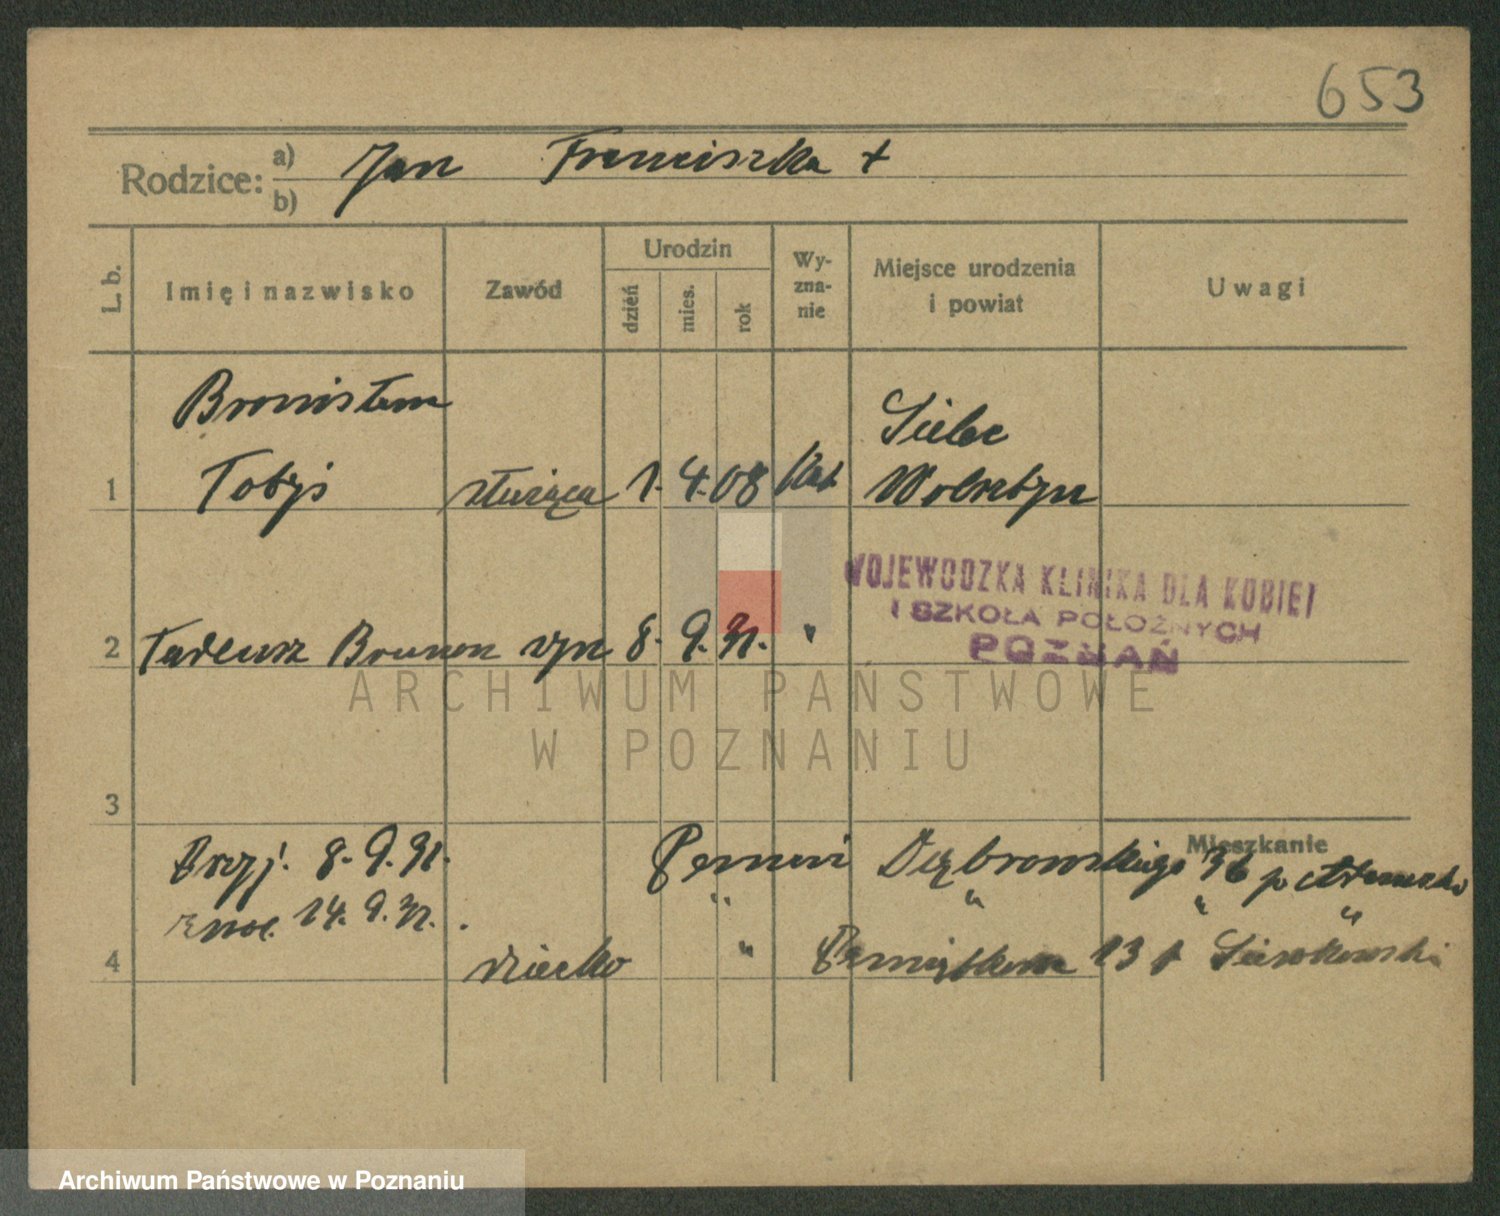 653
Rodzice: a) Jan Franciszka +
b)
L. b. Imię i nazwisko Zawód Urodzin dzień mies. rok Wy-zna-nie Miejsce urodzenia i powiat Uwagi
Bronisława Sielec
1 Tobys służąca 1. 4. 08 kat Wolsztyn
WOJEWÓDZKA KLINIKA DLA KOBIET
I SZKOŁA POŁOŻNYCH
POZNAŃ
2 Tadeusz Brunon syn 8. 9. 31. "
ARCHIWUM PAŃSTWOWE
W POZNANIU
3
Mieszkanie
Przyj. 8. 9. 31. Dąbrowskiego 36
14. 9. 31. " " " "
4 dziecko " 13
Archiwum Państwowe w Poznaniu